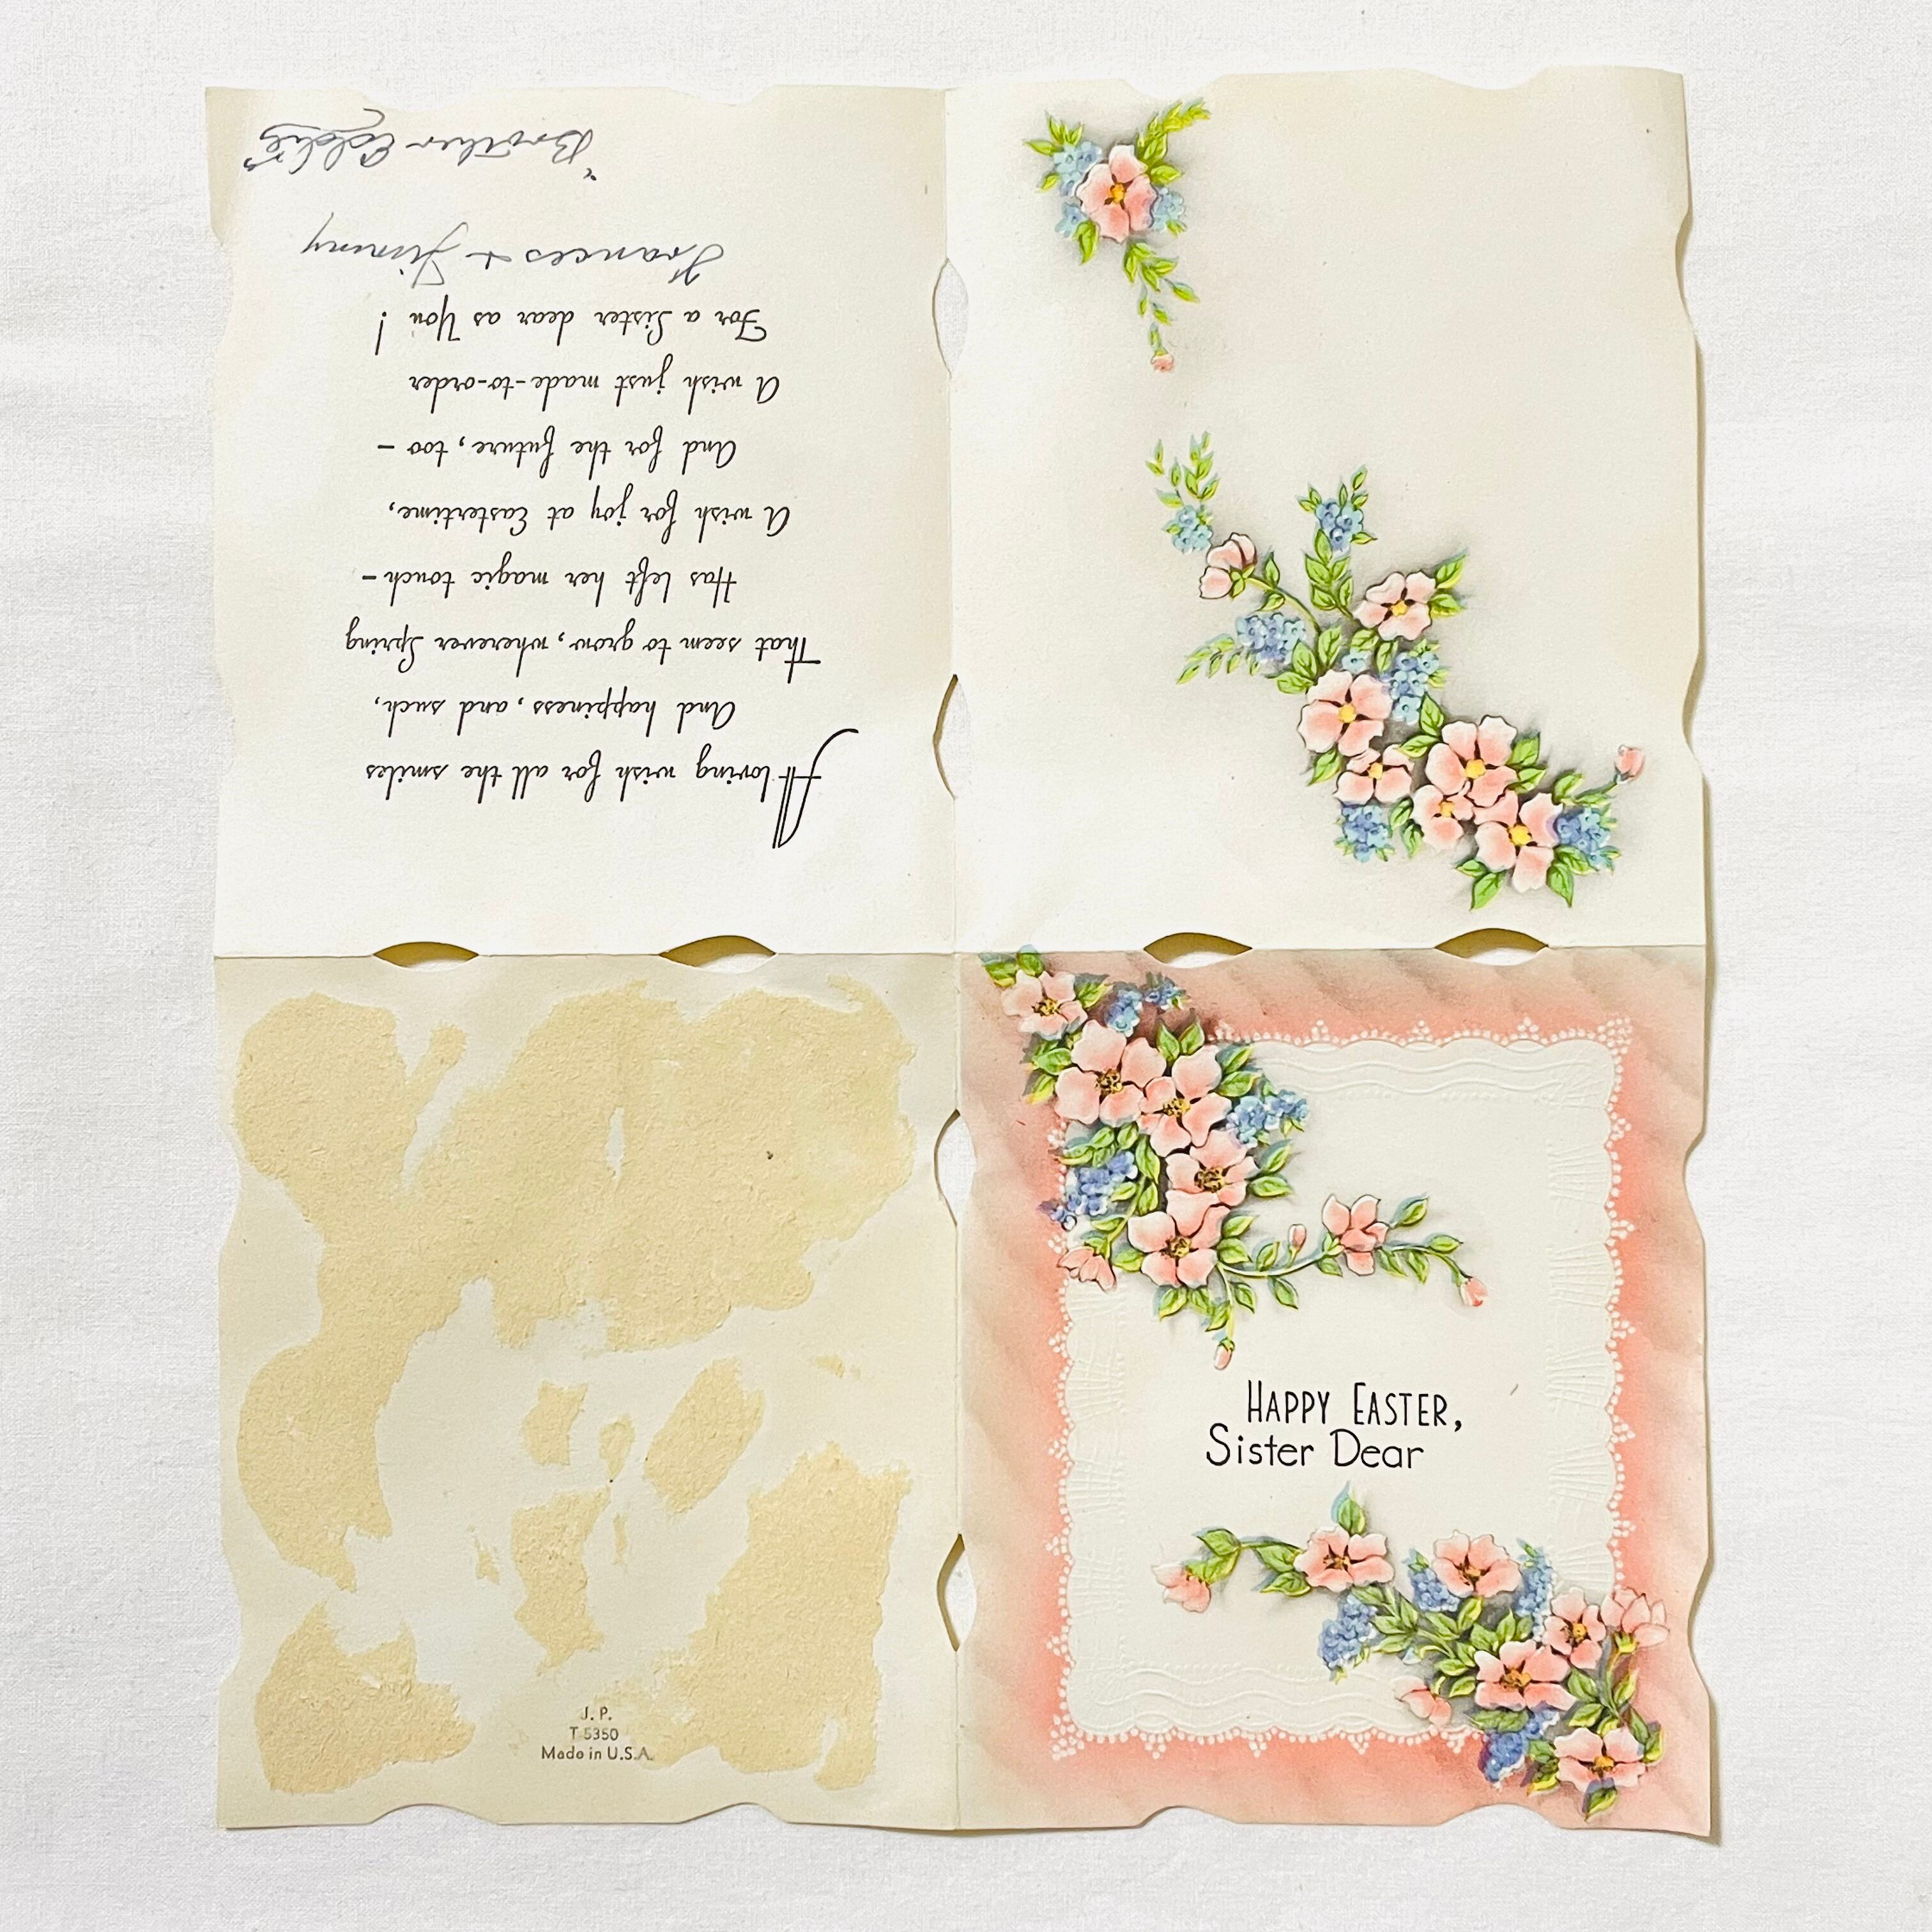 HAPPY EASTER,
Sister Dear
A loving wish for all the smiles
And happiness, and such,
That seem to grow, wherever Spring
Has left her magic touch-
A wish for joy at Eastertime,
And for the future, too-
A wish just made-to-order
For a Sister dear as You!
Frances & Jimmy
"Brother Eddie"
J. P.
T 5350
Made in U.S.A.